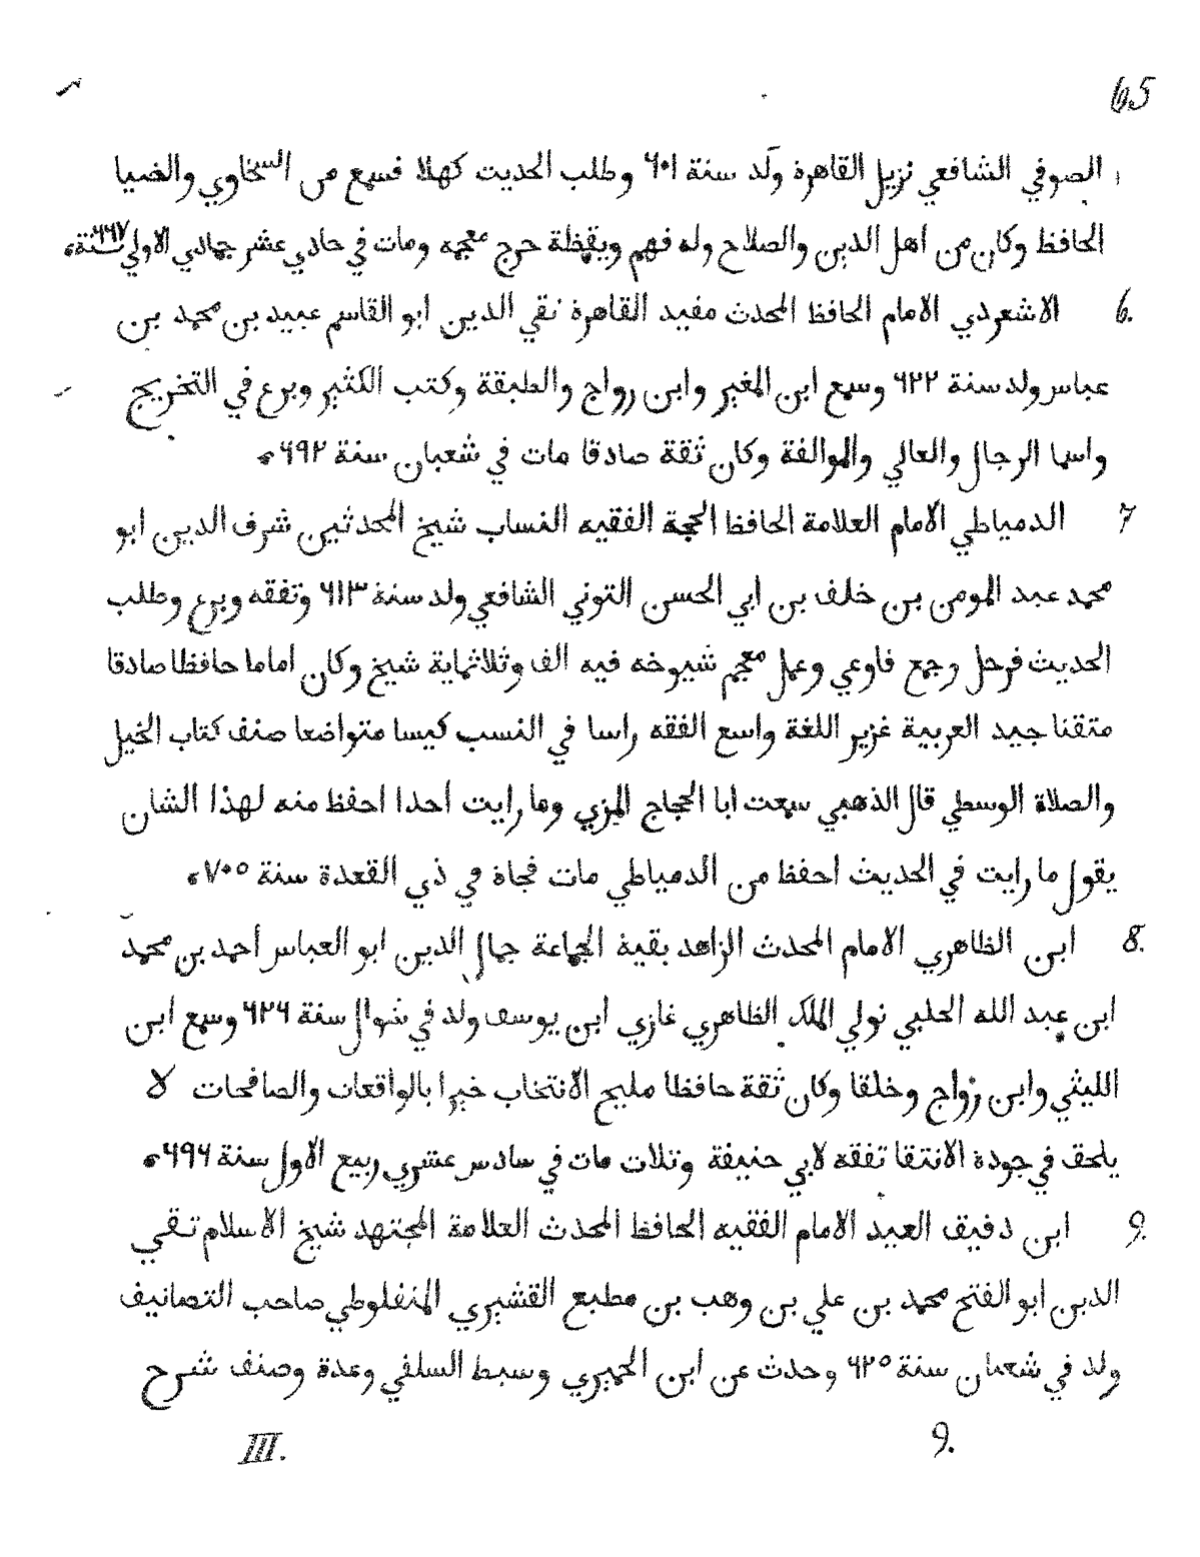 65
الصوفي الشافعي نزيل القاهرة ولد سنة ٦٠١ وطلب الحديت كهلا فسمع من السخاوي والضيا
الحافظ وكان من اهل الدين والصلاح وله فهم ويقظة حرج معجمه ومات في حادي عشر جمادي الاولي سنة ٦٦٧
6. الاشعردي الامام الحافظ المحدث مفيد القاهرة نقي الدين ابو القاسم عبيد بن محمد بن
عباس ولد سنة ٦٢٢ وسمع ابن المغير وابن رواج والطبقة وكتب الكثير وبرع في التخريج
واسما الرجال والعالي والموالفة وكان ثقة صادقا مات في شعبان سنة ٦٩٢
7 الدمياطي الامام العلامة الحافظ الحجة الفقيه النساب شيخ المحدثين شرف الدين ابو
محمد عبد المومن بن خلف بن ابي الحسن التوني الشافعي ولد سنة ٦١٣ وتفقه وبرع وطلب
الحديث فرحل وجمع فاوعي وعمل معجم شيوخه فيه الف وثلاثماية شيخ وكان اماما حافظا صادقا
متقنا جيد العربية غزير اللغة واسع الفقه راسا في النسب كيسا متواضعا صنف كتاب الخيل
والصلاة الوسطي قال الذهبي سمعت ابا الحجاج المزي وما رايت احدا احفظ منه لهذا الشان
يقول ما رايت في الحديث احفظ من الدمياطي مات فجاة في ذي القعدة سنة ٧٠٥
8. ابن الظاهري الامام المحدث الزاهد بقية الجماعة جمال الدين ابو العباس أحمد بن محمد
ابن عبد الله الحلبي نولي الملك الظاهري غازي ابن يوسف ولد في شوال سنة ٦٢٦ وسمع ابن
الليثي وابن زواج وخلقا وكان ثقة حافظا مليح الانتخاب خبرا بالواقعات والصافحات لا
يلحق في جودة الانتقا تفقه لابي حنيفة وتلات مات في سادس عشري ربيع الاول سنة ٦٩٦
9. ابن دفيق العيد الامام الفقيه الحافظ المحدث العلامة المجتهد شيخ الاسلام تقي
الدين ابو الفتح محمد بن علي بن وهب بن مطبع القشيري المنفلوطي صاحب التصانيف
ولد في شعبان سنة ٦٢٥ وحدث عن ابن الحميري وسبط السلفي وعدة وصنف شرح
III. 9.